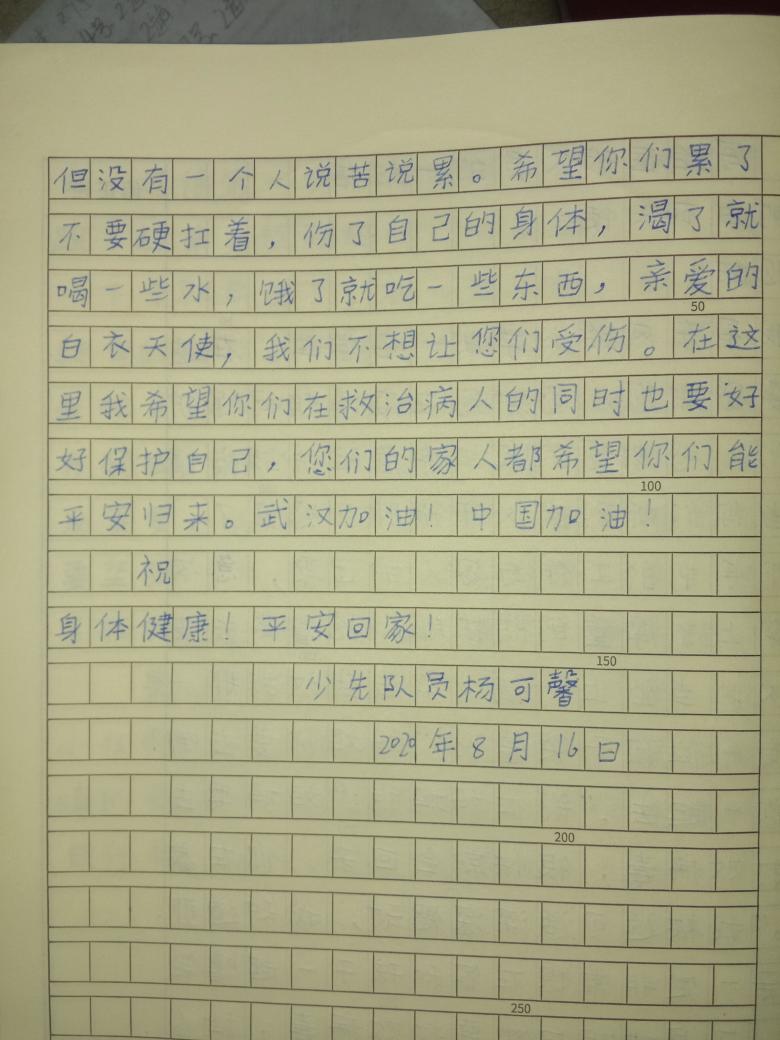 但没有一个人说苦说累。希望你们累了
不要硬扛着，伤了自己的身体，渴了就
喝一些水，饿了就吃一些东西，亲爱的
50
白衣天使，我们不想让您们受伤。在这
里我希望你们在救治病人的同时也要好
好保护自己，您们的家人都希望你们能
100
平安归来。武汉加油！中国加油！
祝
身体健康！平安回家！
150
少先队员杨可馨
2020年8月16日
200
250